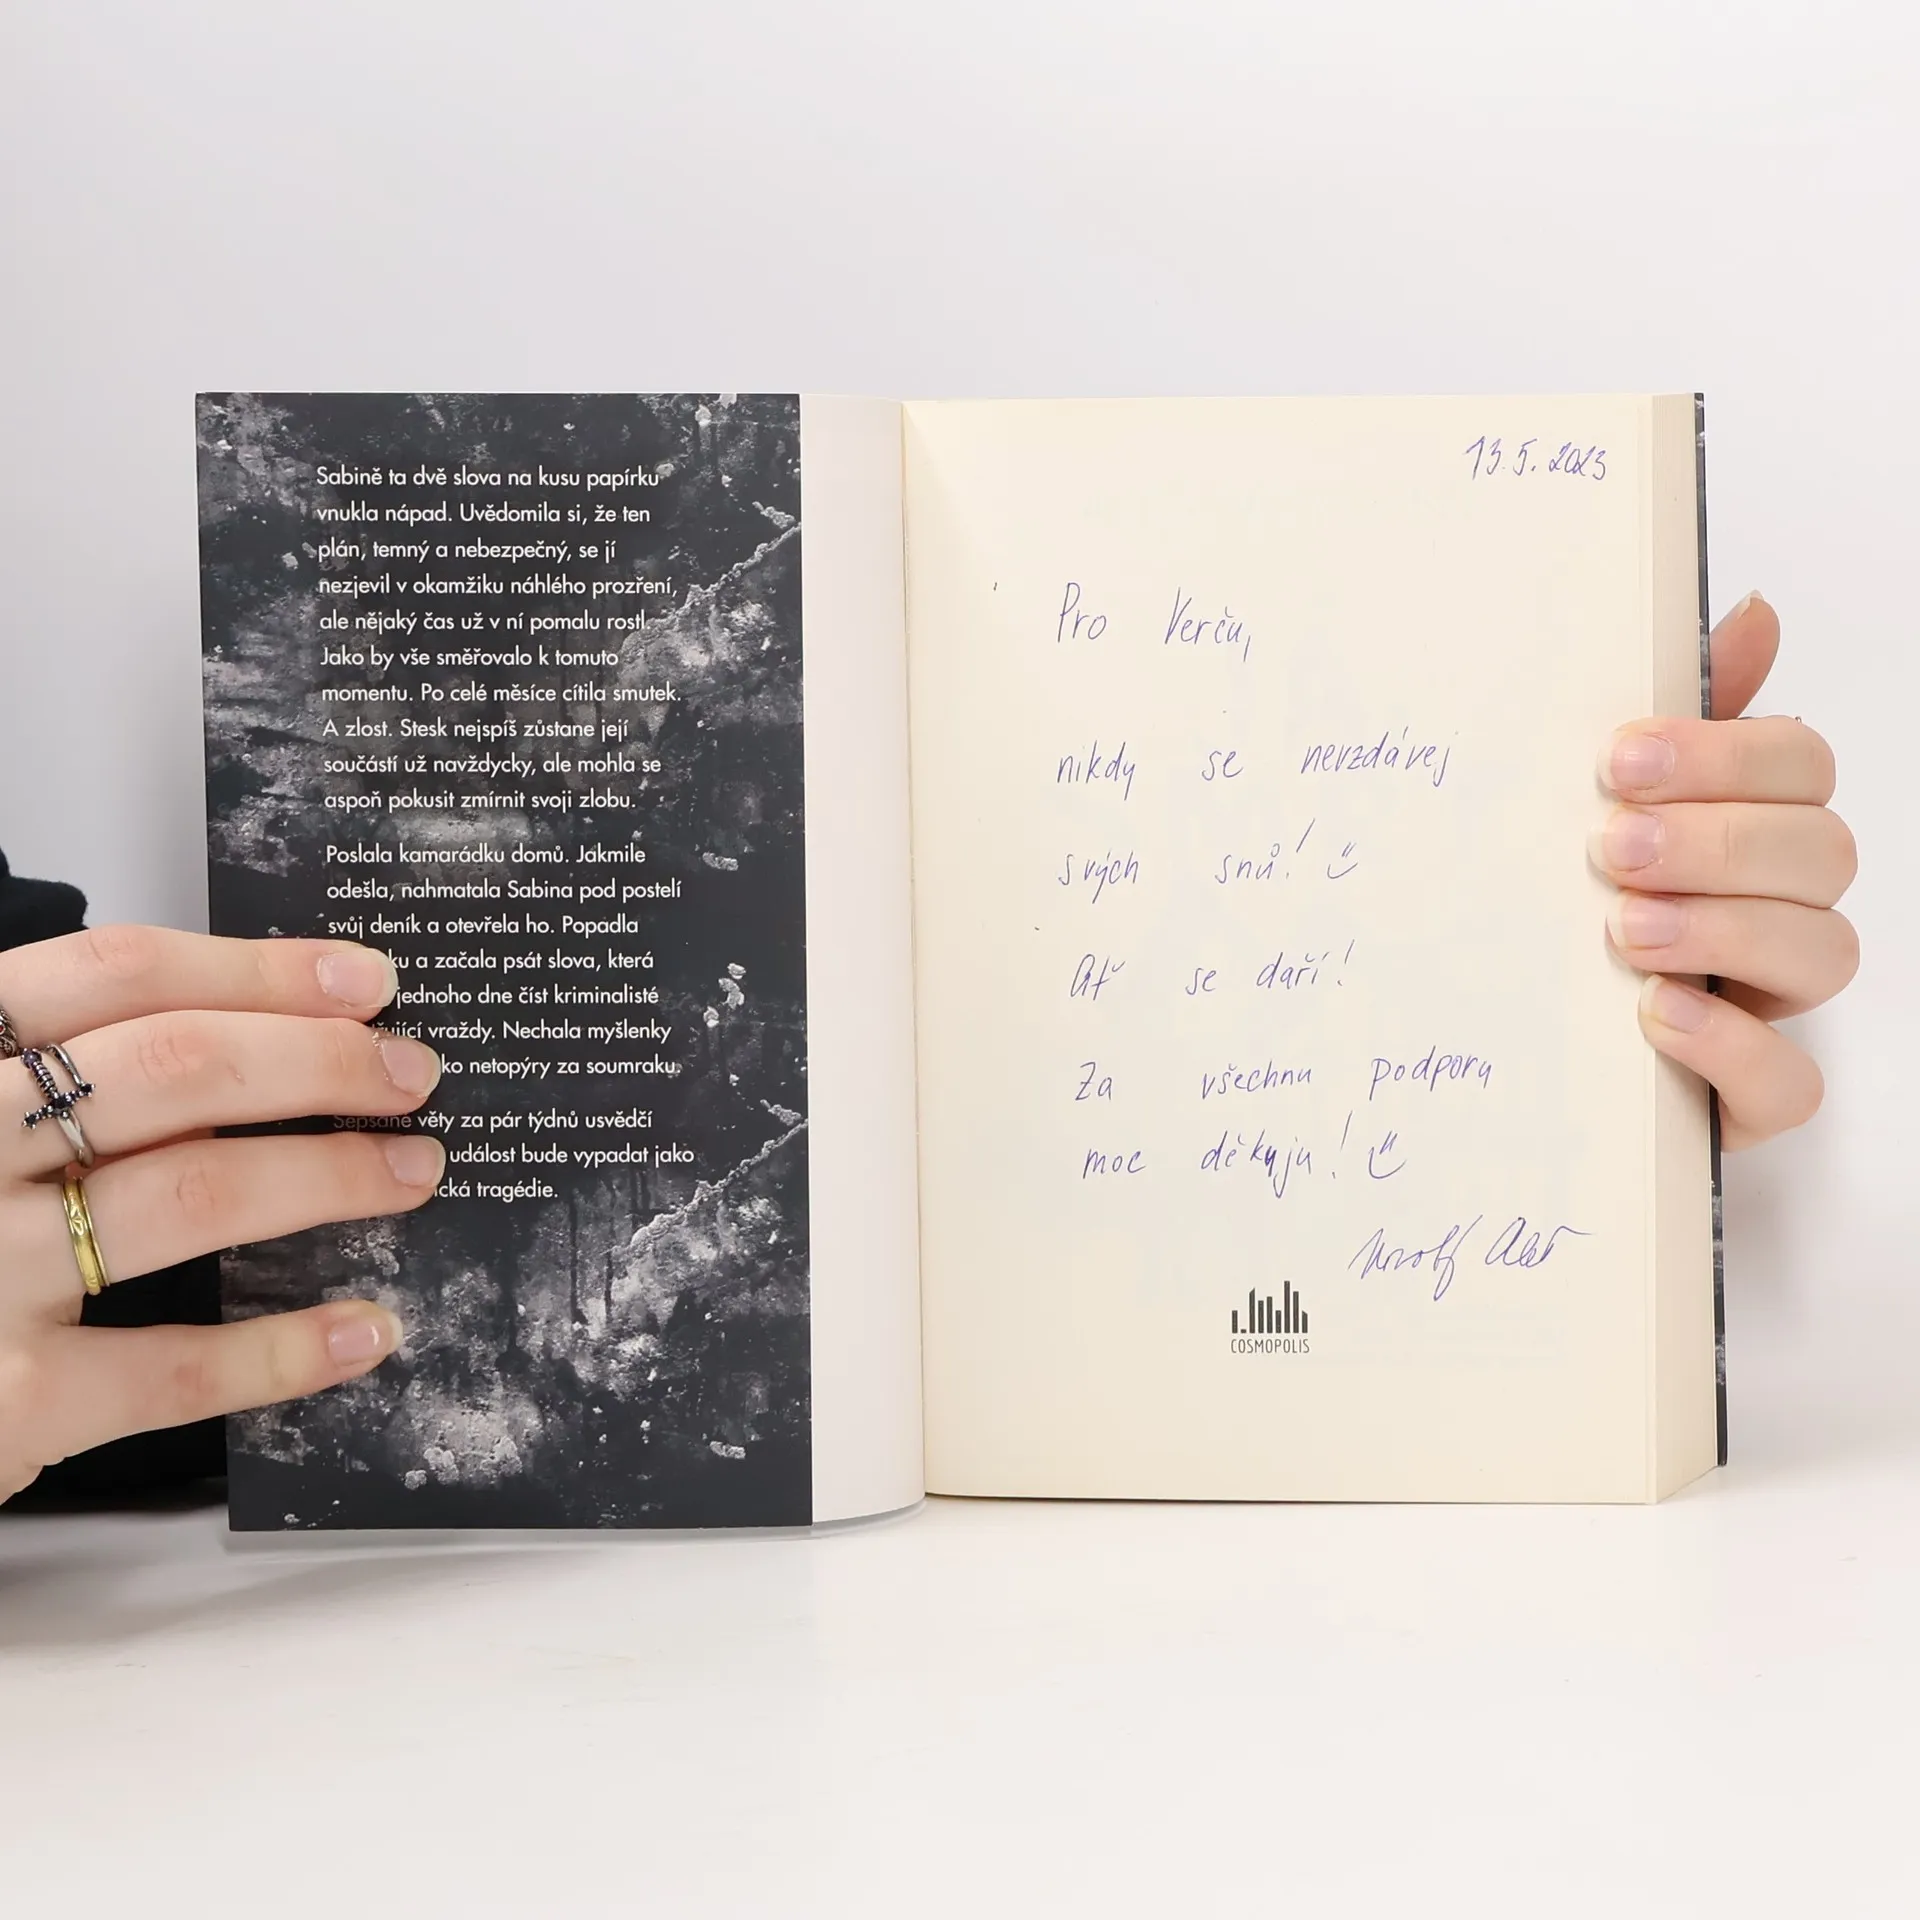 Sabině ta dvě slova na kusu papírku
vnukla nápad. Uvědomila si, že ten
plán, temný a nebezpečný, se jí
nezjevil v okamžiku náhlého prozření,
ale nějaký čas už v ní pomalu rostl.
Jako by vše směřovalo k tomuto
momentu. Po celé měsíce cítila smutek.
A zlost. Stesk nejspíš zůstane její
součástí už navždycky, ale mohla se
aspoň pokusit zmírnit svoji zlobu.
Poslala kamarádku domů. Jakmile
odešla, nahmatala Sabina pod postelí
svůj deník a otevřela ho. Popadla
a začala psát slova, která
jednoho dne číst kriminalisté
vraždy. Nechala myšlenky
netopýry za soumraku.
Sepsané věty za pár týdnů usvědčí
událost bude vypadat jako
tragédie.
13.5.2023
Pro Verču,
nikdy se nevzdávej
svých snů!
Ať se daří!
Za všechnu podporu
moc děkuju!
COSMOPOLIS